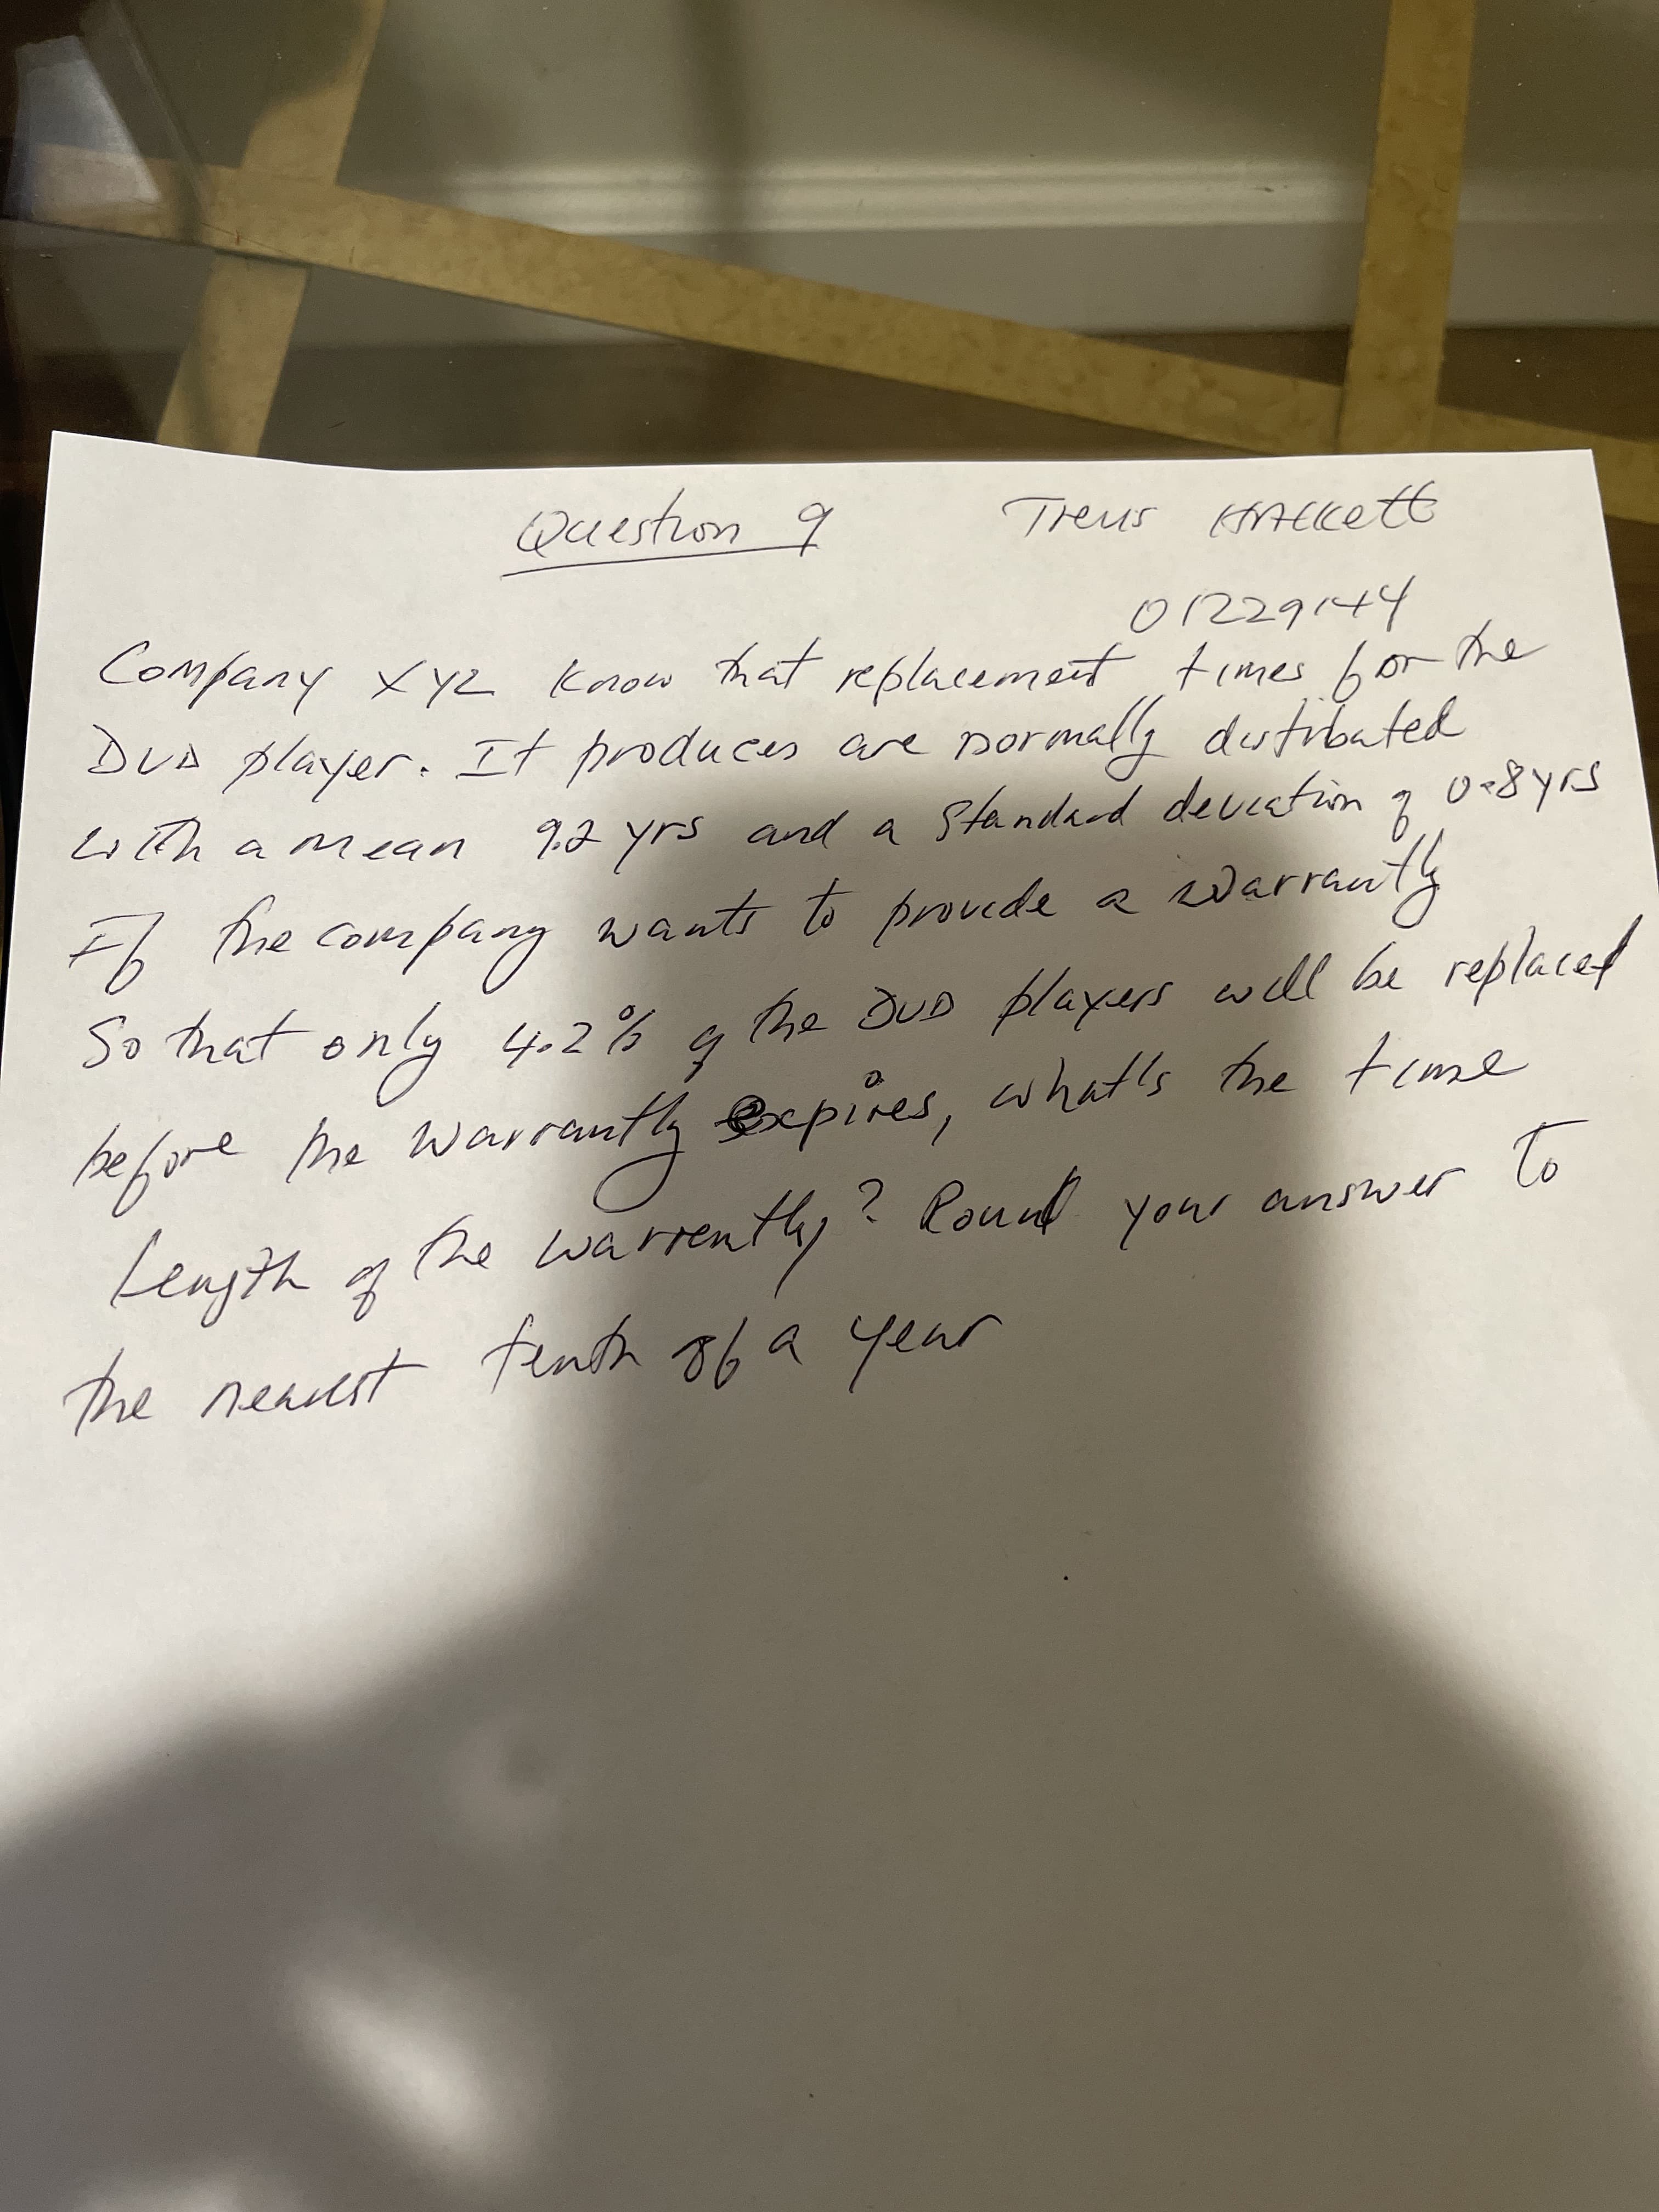 Question 9
01229144
Company XYZ know that replacement times for the
DVD player. It produces are normally distributed
with a mean 9.2 yrs and a standard deviation of 0.8 yrs
If the company wants to provide a warrantly
So that only 4.2% of the DVD players will be replaced
before the warrantly expires, what's the time
Length of the warrently? Round your answer to
the nearest tenth of a year